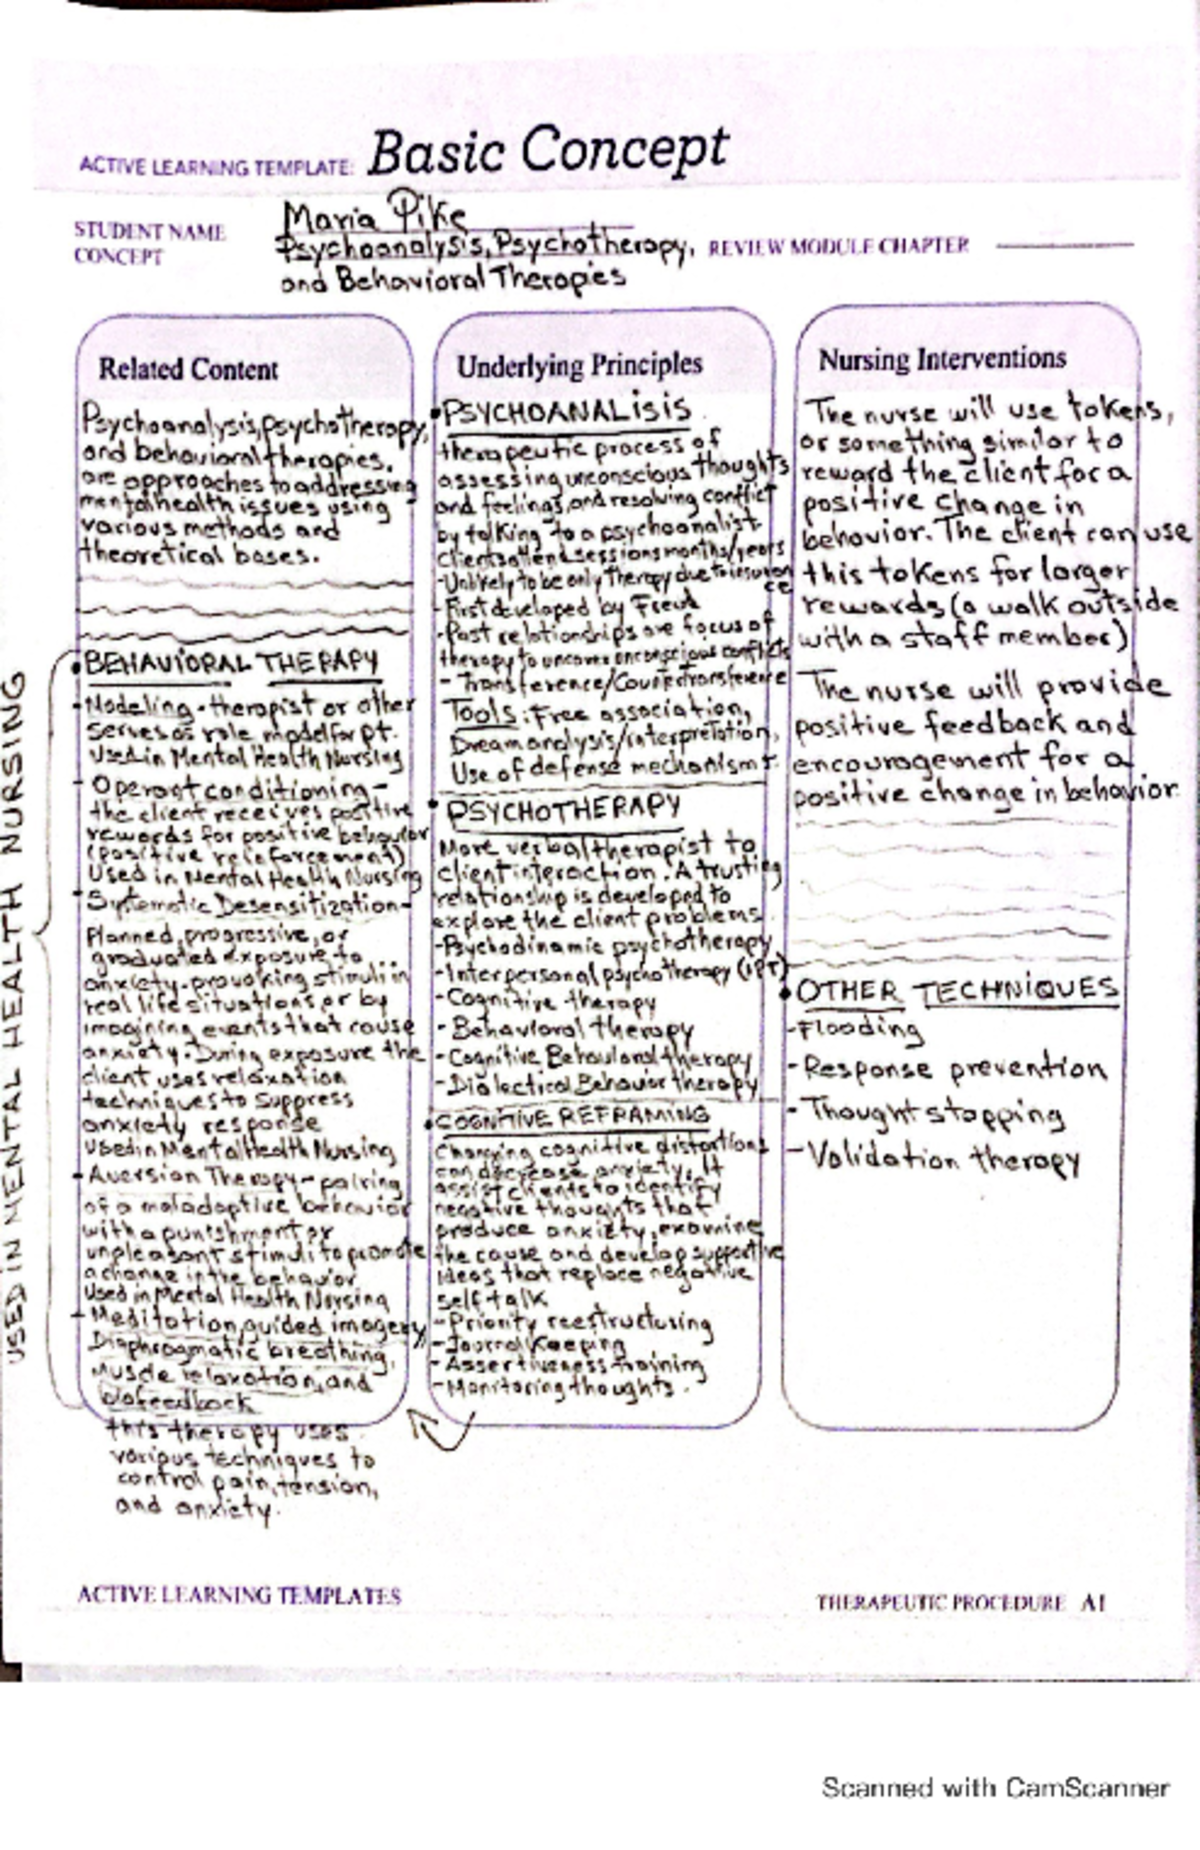 ACTIVE LEARNING TEMPLATE: Basic Concept
STUDENT NAME Maria Pike
CONCEPT Psychoanalysis, Psychotherapy, REVIEW MODULE CHAPTER
and Behavioral Therapies
Related Content
Psychoanalysis, psychotherapy,
and behavioral therapies,
are approaches to addressing
mental health issues using
various methods and
theoretical bases.
USED IN MENTAL HEALTH NURSING
• BEHAVIORAL THERAPY
- Modeling - therapist or other
serves as role model for pt.
Used in Mental Health Nursing
- Operant conditioning -
the client receives positive
rewards for positive behavior
(positive reinforcement)
Used in Mental Health Nursing
- Systematic Desensitization -
Planned, progressive, or
graduated exposure to
anxiety-provoking stimuli in
real life situations, or by
imagining events that cause
anxiety. During exposure the
client uses relaxation
techniques to suppress
anxiety response
Used in Mental Health Nursing
- Aversion Therapy - pairing
of a maladaptive behavior
with a punishment or
unpleasant stimuli to promote
a change in the behavior
Used in Mental Health Nursing
- Meditation, guided imagery,
Diaphragmatic breathing,
Muscle relaxation, and
biofeedback
this therapy uses
various techniques to
control pain, tension,
and anxiety.
Underlying Principles
• PSYCHOANALISIS
therapeutic process of
assessing unconscious thoughts
and feelings, and resolving conflict
by talking to a psychoanalist
Clients attend sessions months/years
- Unlikely to be only therapy due to insurance
- First developed by Freud
- Past relationships are focus of
therapy to uncover unconscious conflicts
- Transference/Countertransference
Tools: Free association,
Dream analysis/interpretation,
Use of defense mechanisms.
• PSYCHOTHERAPY
More verbal therapist to
client interaction. A trusting
relationship is developed to
explore the client problems.
- Psychodinamic psychotherapy
- Interpersonal psychotherapy (IPT)
- Cognitive therapy
- Behavioral therapy
- Cognitive Behavioral therapy
- Dialectical Behavior therapy
• COGNITIVE REFRAMING
Changing cognitive distortions
can decrease anxiety. It
assist clients to identify
negative thoughts that
produce anxiety, examine
the cause and develop supportive
ideas that replace negative
self talk
- Priority reestructuring
- Journal Keeping
- Assertiveness training
- Monitoring thoughts.
Nursing Interventions
The nurse will use tokens,
or something similar to
reward the client for a
positive change in
behavior. The client can use
this tokens for larger
rewards (a walk outside
with a staff member)
The nurse will provide
positive feedback and
encouragement for a
positive change in behavior
• OTHER TECHNIQUES
- Flooding
- Response prevention
- Thought stopping
- Validation therapy
ACTIVE LEARNING TEMPLATES
THERAPEUTIC PROCEDURE A1
Scanned with CamScanner